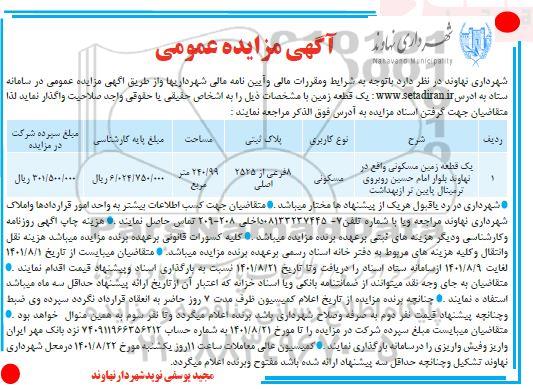 شهرداری نهاوند
Nahavand Municipality
آگهی مزایده عمومی
شهرداری نهاوند در نظر دارد باتوجه به شرایط ومقررات مالی وآیین نامه مالی شهرداریها واز طریق آگهی مزایده عمومی در سامانه
ستاد به ادرس www.setadiran.ir : یک قطعه زمین با مشخصات ذیل را به اشخاص حقیقی یا حقوقی واجد صلاحیت واگذار نماید لذا
متقاضیان جهت گرفتن اسناد مزایده به آدرس فوق الذکر مراجعه نمایند :
ردیف شرح نوع کاربری پلاک ثبتی مساحت مبلغ پایه کارشناسی مبلغ سپرده شرکت در مزایده
۱ یک قطعه زمین مسکونی واقع در نهاوند بلوار امام حسین روبروی ترمینال پایین تر ازبهداشت مسکونی ۸فرعی از ۲۵۲۵ اصلی ۲۴۰/۹۹ متر مربع ۶/۰۲۴/۷۵۰/۰۰۰ریال ۳۰۱/۵۰۰/۰۰۰ ریال
شهرداری در رد یاقبول هریک از پیشنهاد ها مختار میباشد. متقاضیان جهت کسب اطلاعات بیشتر به واحد امور قراردادها واملاک
شهرداری نهاوند مراجعه ویا با شماره تلفن۷- ۰۸۱۳۳۲۳۷۴۴۵داخلی ۲۰۸-۲۰۹ تماس حاصل نمایند. هزینه چاپ آگهی روزنامه
وکارشناسی ودیگر هزینه های ثبتی برعهده برنده مزایده میباشد. کلیه کسورات قانونی برعهده برنده مزایده میباشد هزینه نقل
وانتقال وکلیه هزینه های مربوط به دفتر خانه اسناد رسمی برعهده برنده مزایده میباشد. متقاضیان میبایست از تاریخ ۱۴۰۱/۸/۱
لغایت ۱۴۰۱/۸/۹ ازسامانه ستاد اسناد را دریافت وتا تاریخ ۱۴۰۱/۸/۲۱ نسبت به بارگذاری اسناد وپیشنهاد قیمت اقدام نمایند.
متقاضیان به جای وجه نقد میتوانند از ضمانتنامه بانکی ویا اسناد خزانه که اعتبار آن ازتاریخ ارائه پیشنهاد حداقل سه ماه میباشد
استفاده نمایند. چنانچه برنده مزایده از تاریخ اعلام کمیسیون ظرف مدت ۷ روز حاضر به انعقاد قرارداد نگردد سپرده وی ضبط
وچنانچه پیشنهاد قیمت نفر دوم به صرفه وصلاح شهرداری باشد برنده اعلام میگردد وتا نفر سوم به همین منوال خواهد بود.
متقاضیان میبایست مبلغ سپرده شرکت در مزایده را تا مورخ ۱۴۰۱/۸/۲۱ به شماره حساب ۷۴۰۹۱۱۹۶۶۳۵۶۲۱۲ نزد بانک مهر ایران
واریز وفیش واریزی را درسامانه بارگذاری نمایند. کمیسیون عالی معاملات ساعت ۱۱روز یکشنبه مورخ ۱۴۰۱/۸/۲۲ درمحل شهرداری
نهاوند تشکیل وچنانچه حداقل سه پیشنهاد ارائه شده باشد مفتوح وبرنده اعلام میگردد.
مجید یوسفی نوید شهردار نهاوند